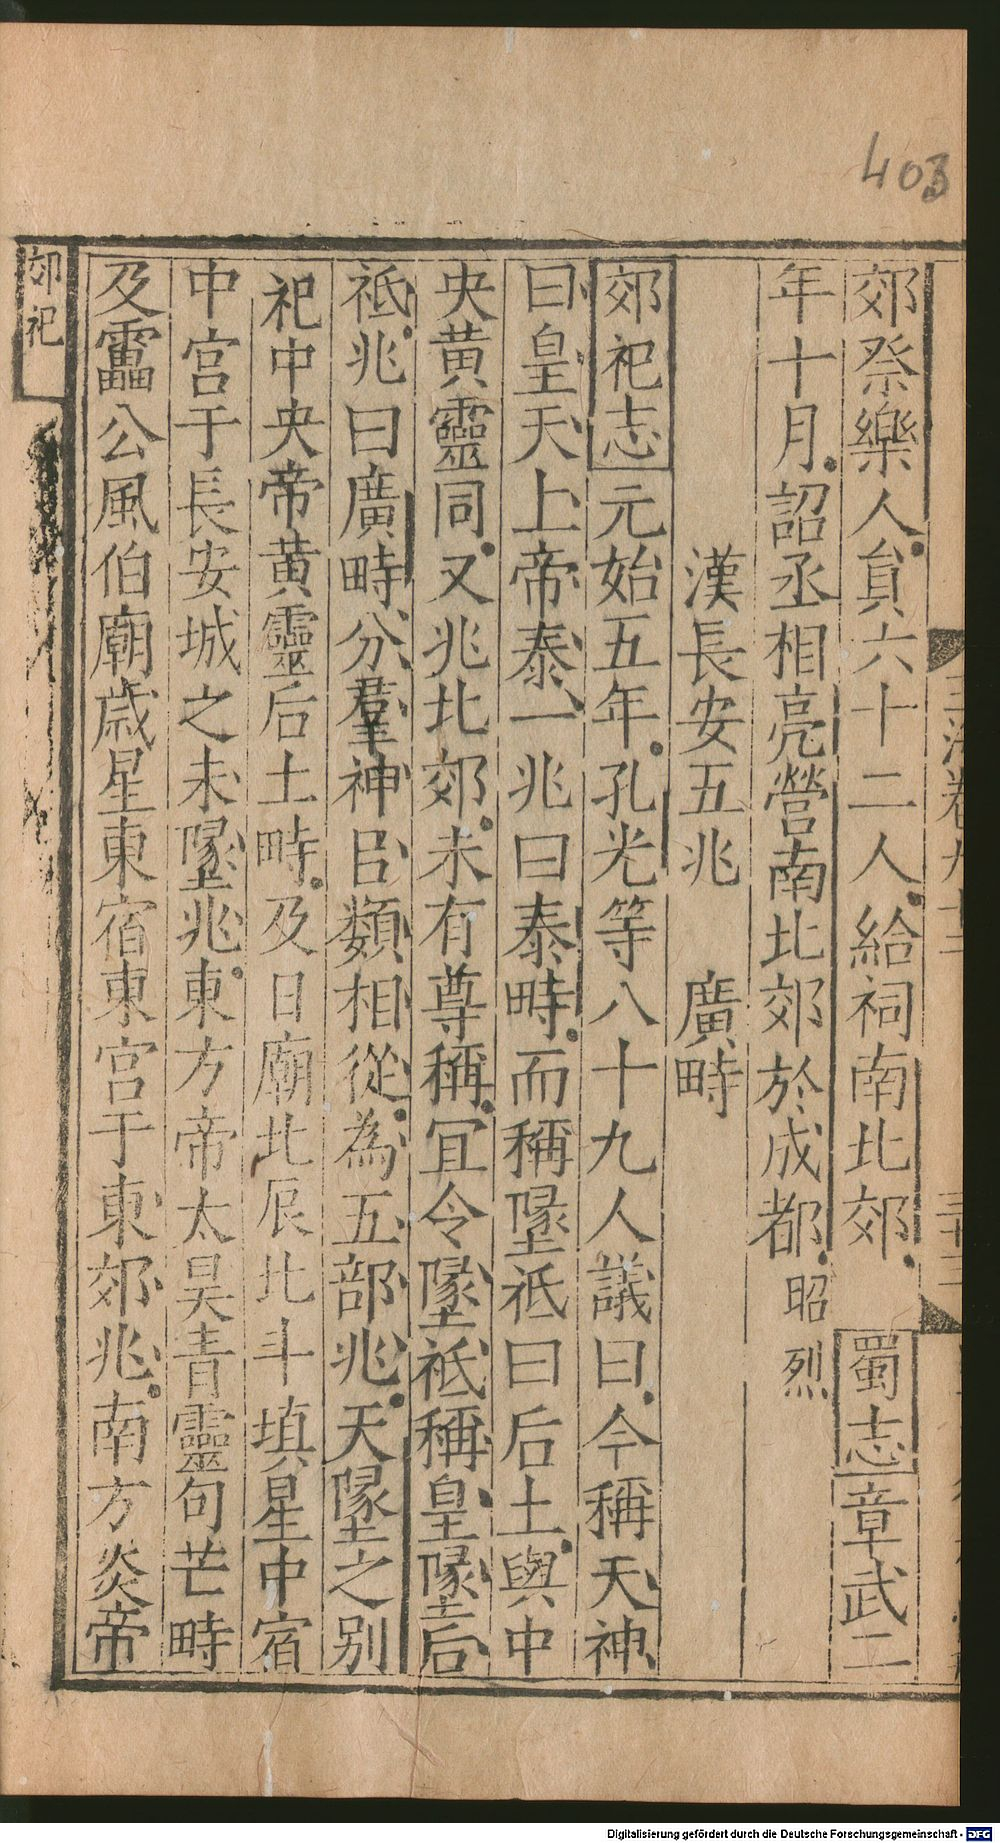 403
郊祭樂人貟六十二人給祠南北郊 蜀志章武二
年十月詔丞相亮營南北郊於成都昭烈
漢長安五兆 廣畤
郊祀志元始五年孔光等八十九人議曰今稱天神
曰皇天上帝泰一兆曰泰畤而稱墬祇曰后土與中
央黄靈同又兆北郊未有尊稱宜令墬祇稱皇墬后
祇兆曰廣畤分羣神㠯類相從為五部兆天墬之别
祀中央帝黄靈后土畤及日廟北辰北斗填星中宿
中宫于長安城之未墬兆東方帝太昊青靈句芒畤
及靁公風伯廟歲星東宿東宫于東郊兆南方炎帝
郊祀
Digitalisierung gefördert durch die Deutsche Forschungsgemeinschaft - DFG